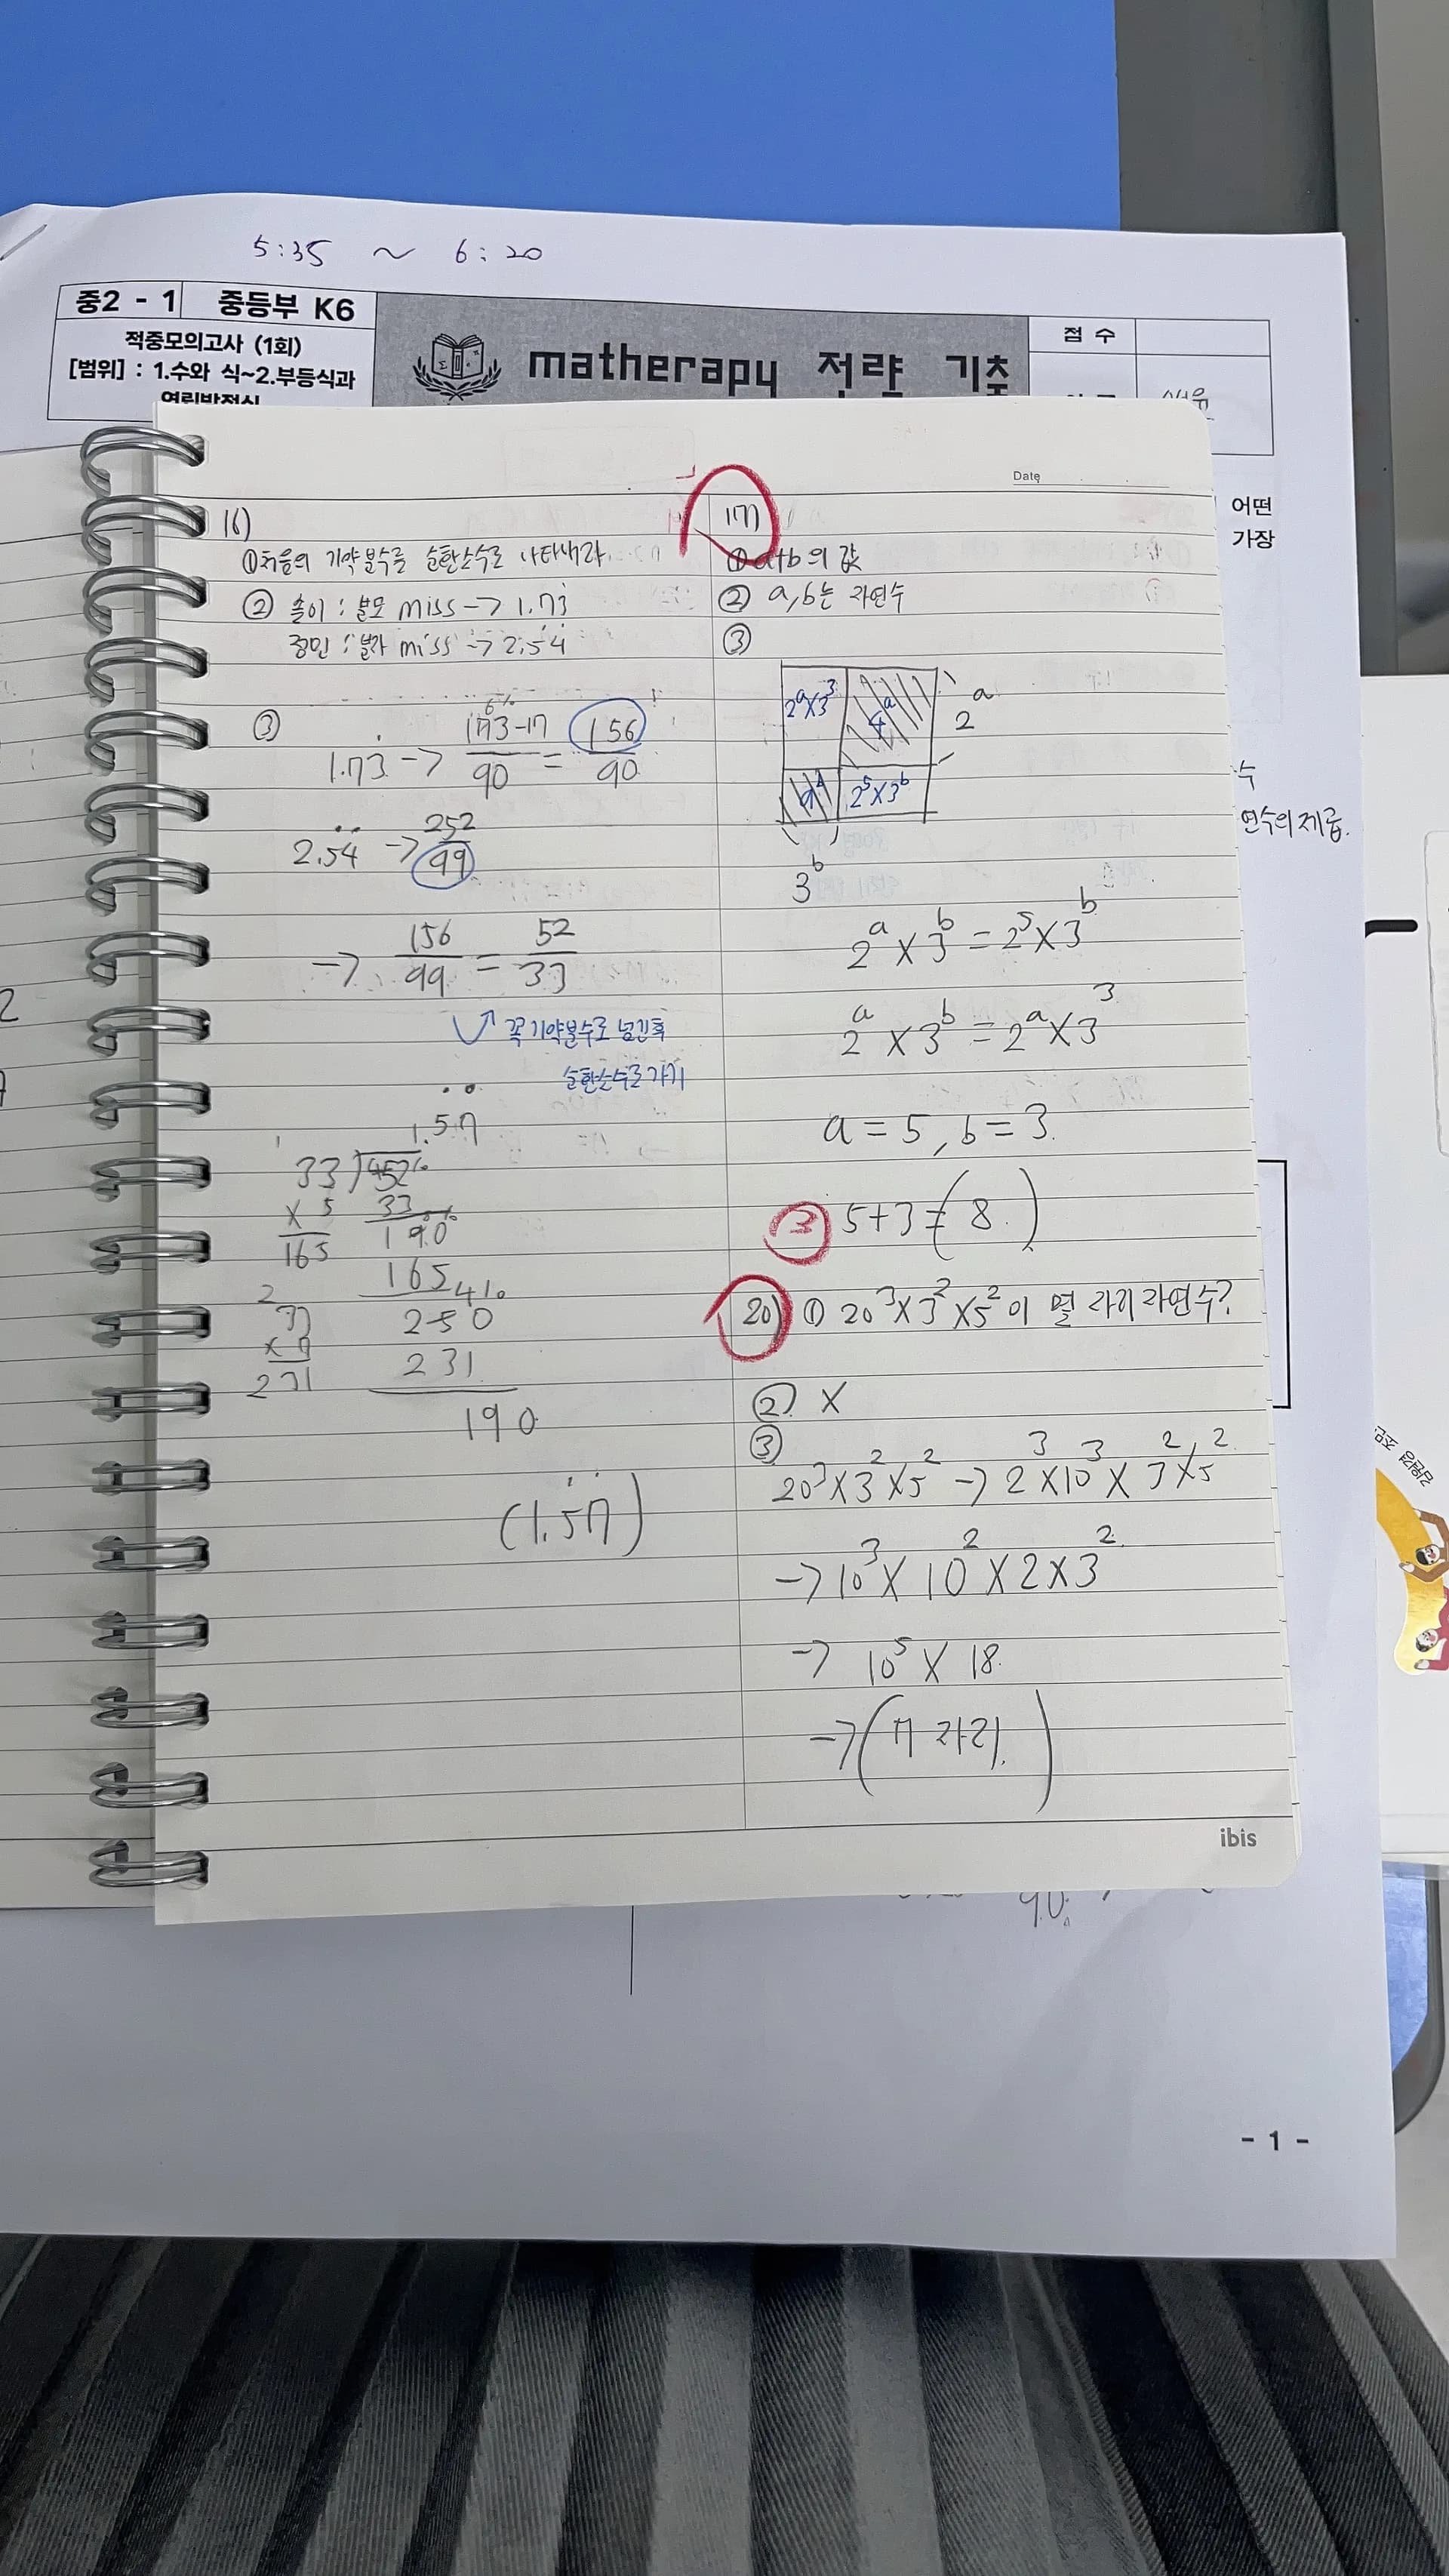 5:35 ~ 6:20
중2 - 1 중등부 K6
적중모의고사 (1회)
[범위] : 1.수와 식~2.부등식과
연립방정식
matherapy 전략 기출
점 수
어떤
가장
수
연수의 제곱.
Date
16)
①처음의 기약분수를 순환소수로 나타내라.
② 솔이 : 분모 miss → 1.73̇
정민 : 분자 miss → 2.5̇4̇
③
1.73̇ → 173-17/90 = 156/90
2.5̇4̇ → 252/99
→ 156/99 = 52/33
꼭 기약분수로 넘긴후
순환소수로 가기
1.5̇7̇
33
× 5
165
33
190
165
250
33
× 7
231
231
190
(1.5̇7̇)
17)
① a+b의 값
② a,b는 자연수
③
2^a×3^3
4^a
2^a
9^b
2^5×3^b
3^b
2^a × 3^b = 2^5 × 3^b
2^a × 3^b = 2^a × 3^3
a = 5, b = 3
③ 5+3 = (8)
20) ① 20^3×3^2×5^2이 몇 자리 자연수?
② X
③
20^3×3^2×5^2 → 2^3×10^3×3^2×5^2
→ 10^3 × 10^2 × 2 × 3^2
→ 10^5 × 18
→ (7자리)
ibis
90
- 1 -